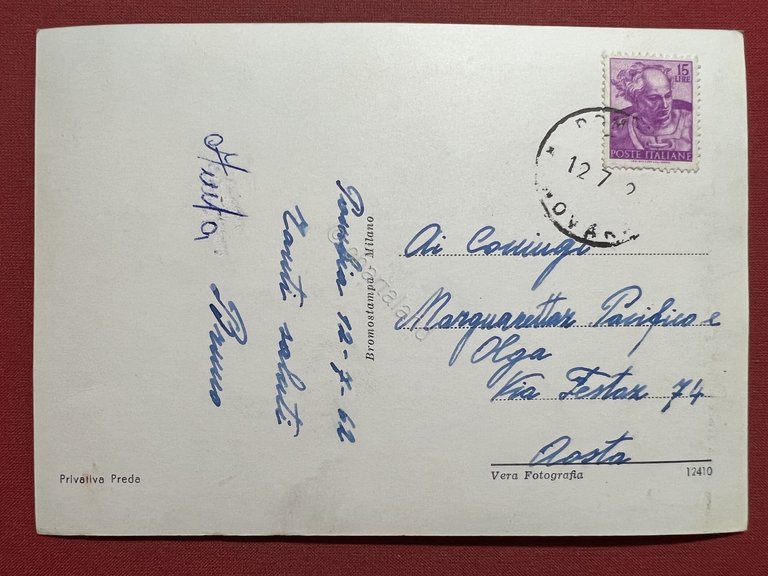 Pombia 12-7-62
Tanti saluti
Bruno
15
LIRE
POSTE ITALIANE
POMB
12 7
NOVARA
Bromostampa - Milano
Ai Coniugi
Marguerettaz Pacifico e
Olga
Via Festaz 74
Aosta
Vera Fotografia
12410
Privativa Preda